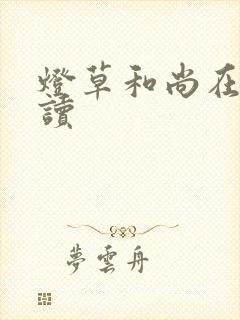 燈草和尚在
讀
夢雲舟